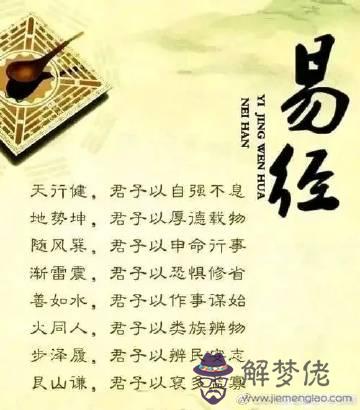 易经
YI JING WEN HUA
NEI HAN
天行健，君子以自强不息
地势坤，君子以厚德载物
随风巽，君子以申命行事
渐雷震，君子以恐惧修省
善如水，君子以作事谋始
火同人，君子以类族辨物
步泽履，君子以辨民安志
艮山谦，君子以裒多益寡
解梦佬
www.jiemenglao.com